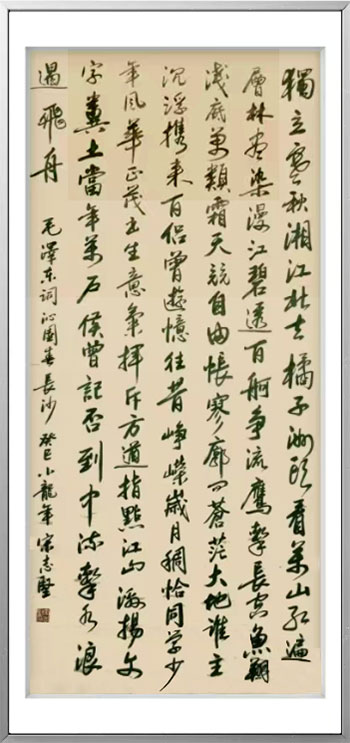 獨立寒秋湘江北去橘子洲頭看萬山紅遍
層林盡染漫江碧透百舸爭流鷹擊長空魚翔
淺底萬類霜天競自由悵寥廓問蒼茫大地誰主
沉浮携來百侣曾遊憶往昔崢嶸歲月稠恰同学少
年風華正茂書生意氣揮斥方遒指點江山激揚文
字糞土當年萬户侯曾記否到中流擊水浪
遏飛舟 毛澤东词沁園春長沙 癸巳小龍年宋志堅